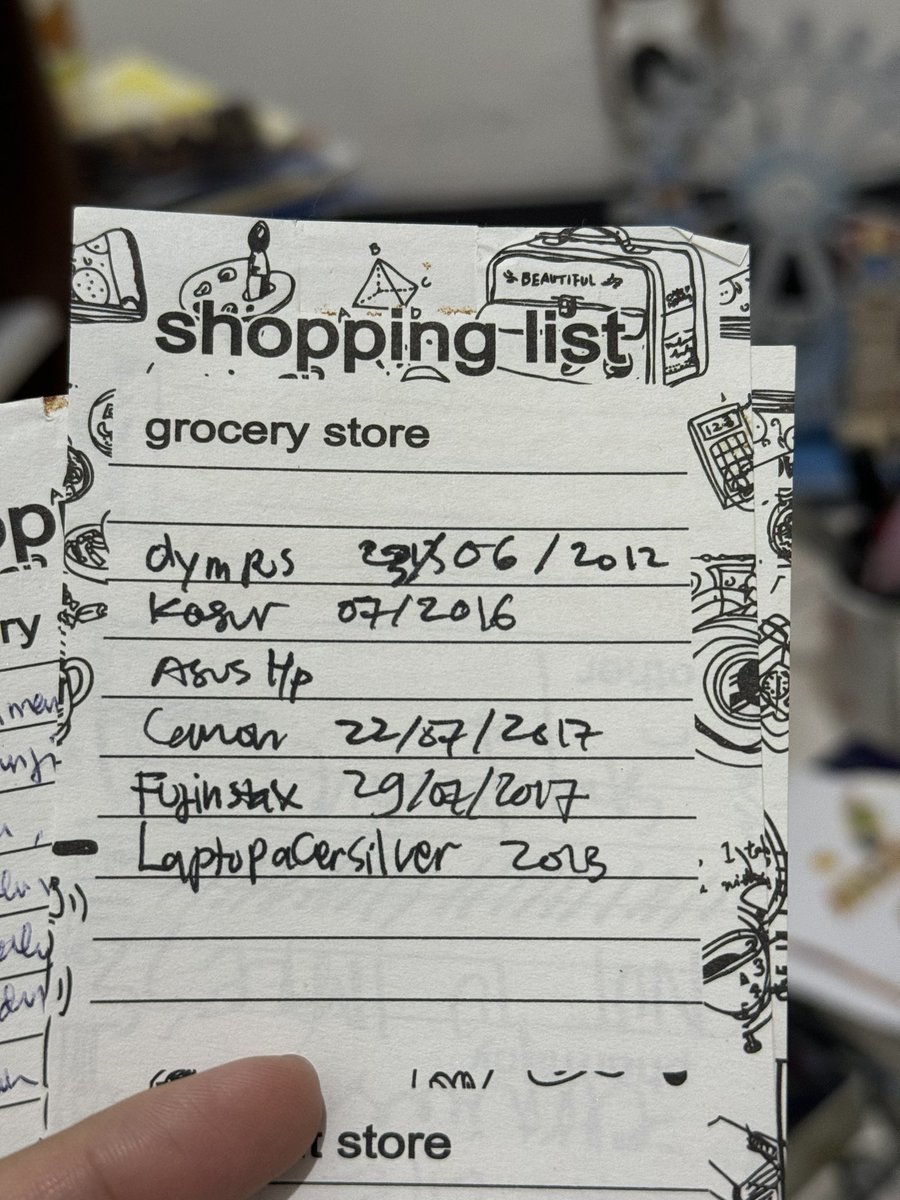 BEAUTIFUL
B
C
A D
shopping list
grocery store
123
Olympus 06/2012
Kasur 07/2016
Asus Hp
Canon 22/07/2017
Fujinstax 29/07/2017
Laptopacersilver 2013
store
op
ry